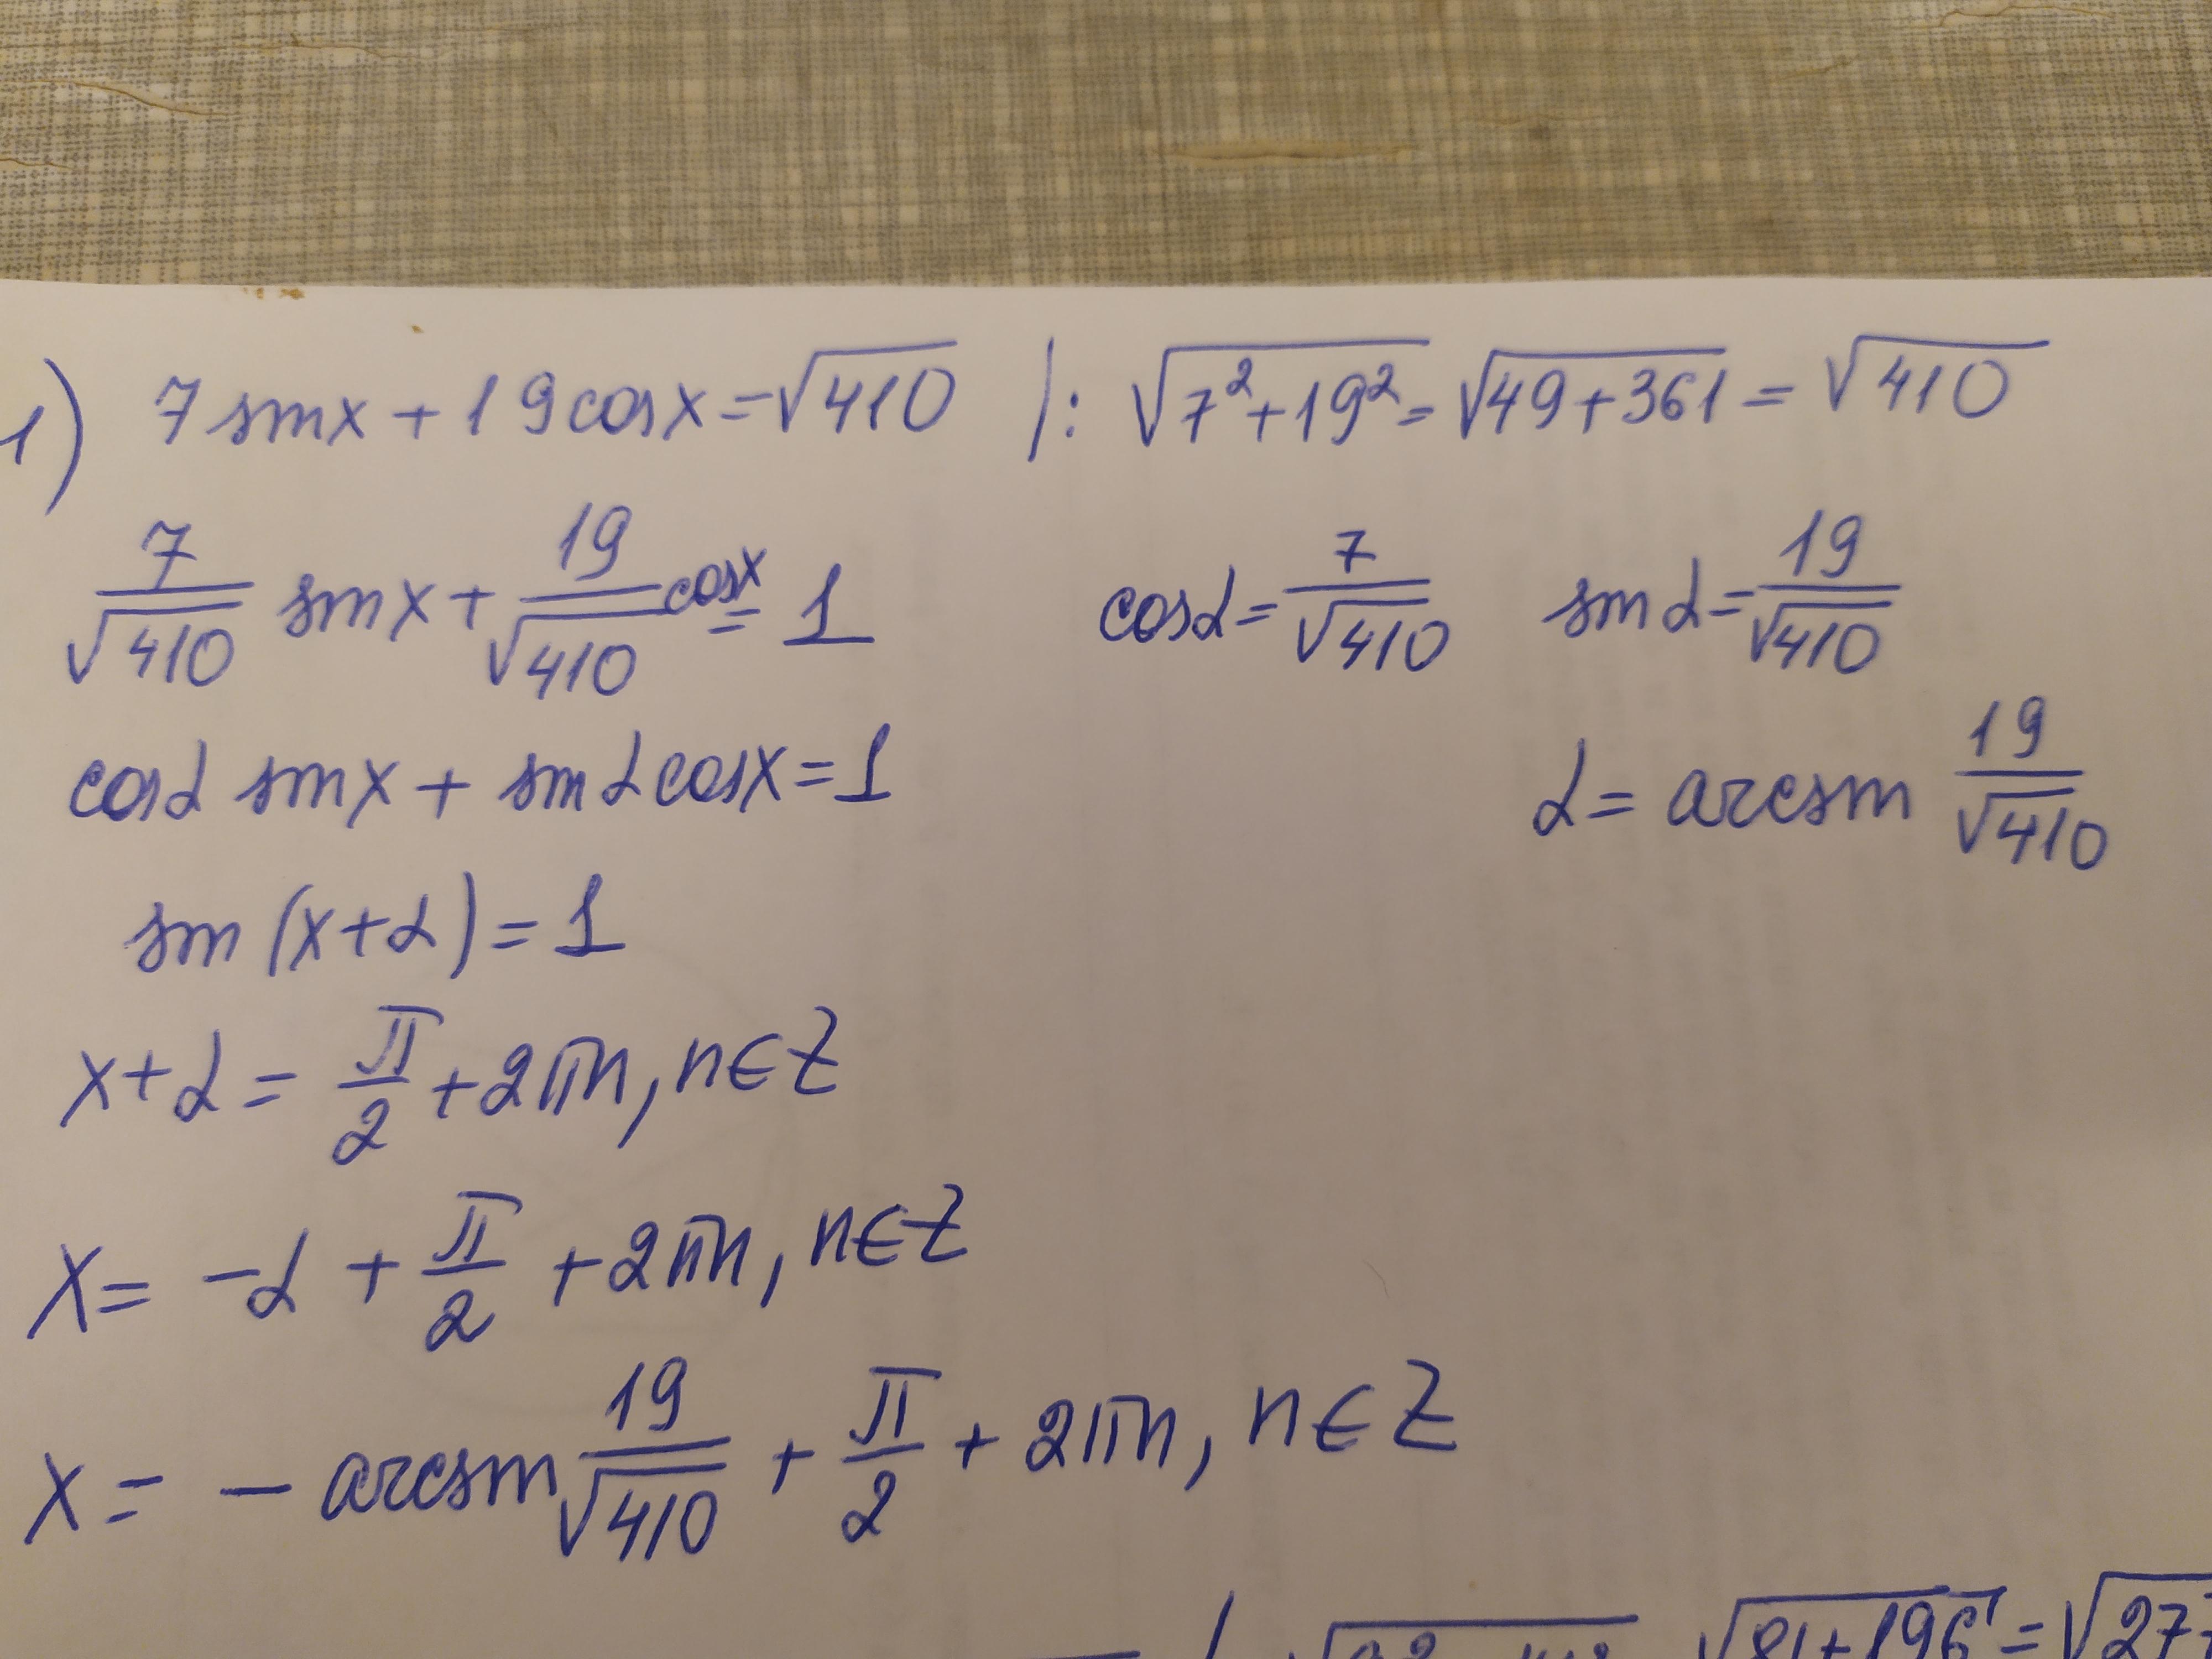 1) 7 sin x + 19 cos x = √410 |: √(7² + 19²) = √(49 + 361) = √410
7/√410 sin x + 19/√410 cos x = 1 cos α = 7/√410 sin α = 19/√410
cos α sin x + sin α cos x = 1 α = arcsin 19/√410
sin (x + α) = 1
x + α = π/2 + 2πn, n ∈ Z
x = -α + π/2 + 2πn, n ∈ Z
x = - arcsin 19/√410 + π/2 + 2πn, n ∈ Z
√(81 + 196) = √277